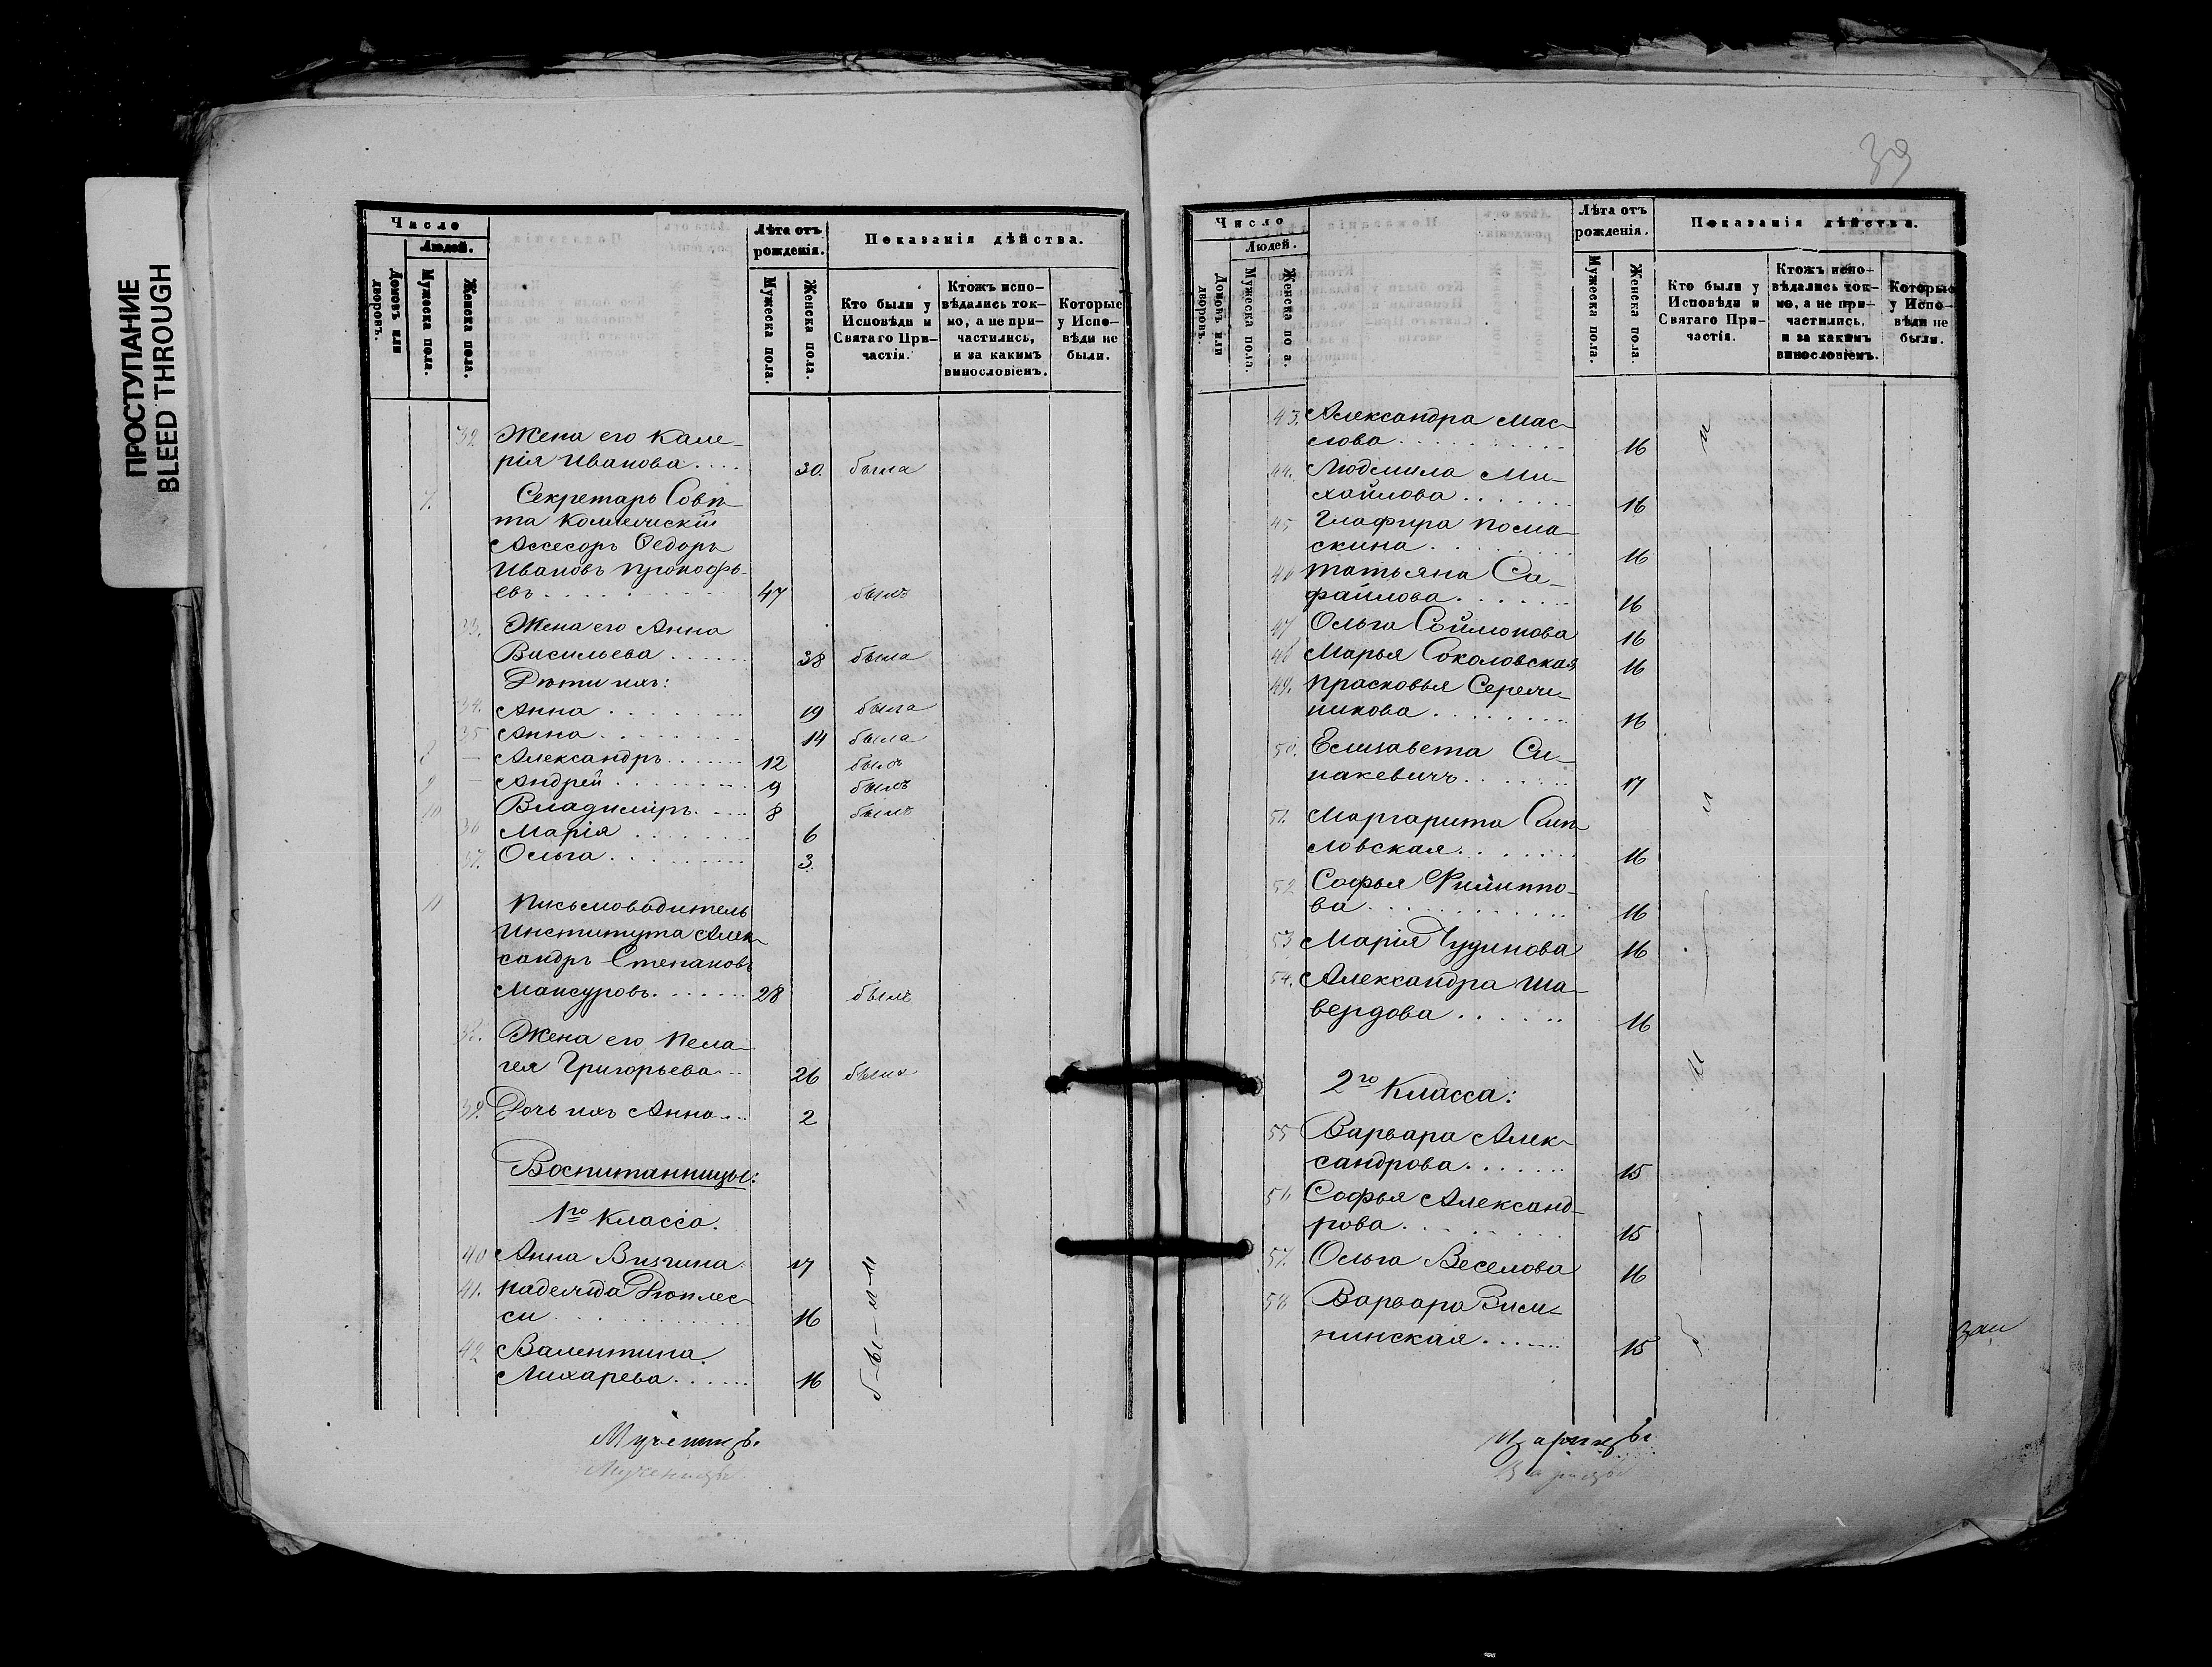 ПРОСТУПАНИЕ
BLEED THROUGH
Число
Людей.
Домовъ или дворовъ.
Мужеска пола.
Женска пола.
Лѣта отъ рожденія.
Мужеска пола.
Женска пола.
Показанія дѣйства.
Кто были у Исповѣди и Святаго При-частія.
Ктожъ испо-вѣдались ток-мо, а не при-частились, и за какимъ винословіемъ.
Которые у Испо-вѣди не были.
32. Жена его Кале-
рія Иванова.... 30. была
7. Секретарь Совѣ-
та Коллежскій
Ассесоръ Ѳедоръ
Ивановъ Прокофь-
евъ.......... 47 былъ
33. Жена его Анна
Васильева...... 38 была
Дѣти ихъ:
34. Анна........ 19 была
35 Анна........ 14 была
8 — Александръ...... 12 былъ
9 — Андрей........ 9 былъ
10 Владиміръ..... 8 былъ
36 Марія........ 6
37. Ольга......... 3.
11 Письмоводитель
Института Алек-
сандръ Степановъ
Мансуровъ...... 28 былъ
38. Жена его Пела-
гея Григорьева... 26 была
39. Дочь ихъ Анна... 2
Воспитанницы:
1го Класса.
40 Анна Визгина 17
41. Надежда Дюплес-
си.......... 16
42 Валентина
Лихарева...... 16
б-ы-л-и
Мученицы.
Мученицы
39
Число
Людей.
Домовъ или дворовъ.
Мужеска пола.
Женска по а.
Лѣта отъ рожденія.
Мужеска пола.
Женска пола.
Показанія дѣйства.
Кто были у Исповѣди и Святаго При-частія.
Ктожъ испо-вѣдались ток-мо, а не при-частились, и за какимъ винословіемъ.
Которые у Испо-вѣди не были.
43. Александра Мас-
слова.......... 16
44. Людмила Ми-
хайлова....... 16
45 Глафира Посла-
скина........ 16
46 Татьяна Са-
файлова....... 16
47 Ольга Соймонова 16
48 Марья Соколовская 16
49. Прасковья
никова........ 16
50. Елизавета Си-
накевичъ...... 17
51. Маргарита
ловская....... 16
52 Софья Филиппо-
ва.......... 16
53 Марія Чудинова 16
54. Александра Ша-
вердова...... 16
2го Класса:
55 Варвара Алек-
сандрова....... 15
56 Софья Александ-
рова......... 15
57. Ольга Веселова 16
58 Варвара Зим-
нинская...... 15
Царицы
Царицы